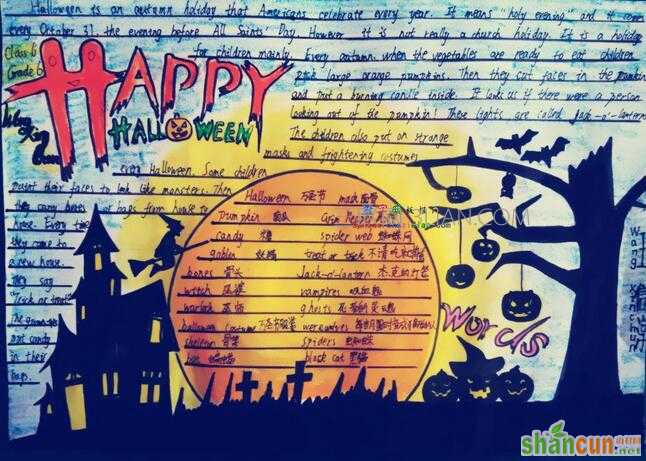 Halloween is an autumn holiday that Americans celebrate every year. It means "holy evening" and it comes
every October 31, the evening before All Saints' Day. However it is not really a church holiday. It is a holiday
for children mainly. Every autumn when the vegetables are ready to eat children
pick large orange pumpkins. Then they cut faces in the pumpkins
and put a burning candle inside. It looks as if there were a person
looking out of the pumpkin! These lights are called Jack-o'-lanterns
The children also put on strange
masks and frightening costumes
Class 6
Grade 6
HAPPY
HALLOWEEN
every Halloween. Some children
paint their faces to look like monsters. Then
they carry boxes or bags from house to
house. Every time
they come to
a new house
they say
Trick or treat
money
in their
bags.
Halloween 万圣节 mask 面管
pumpkin 南瓜
candy 糖 spider web 蜘蛛网
goblin 妖精 treat or trick
bones 骨头 Jack-o'-lantern 杰克的灯笼
witch 巫婆 vampires 吸血鬼
warlock 巫师 ghosts
halloween costume 万圣节服装 werewolves
skeleton 骨架 spiders 蜘蛛
bat 蝙蝠 black cat 黑猫
Words
Wang
shancun
.net